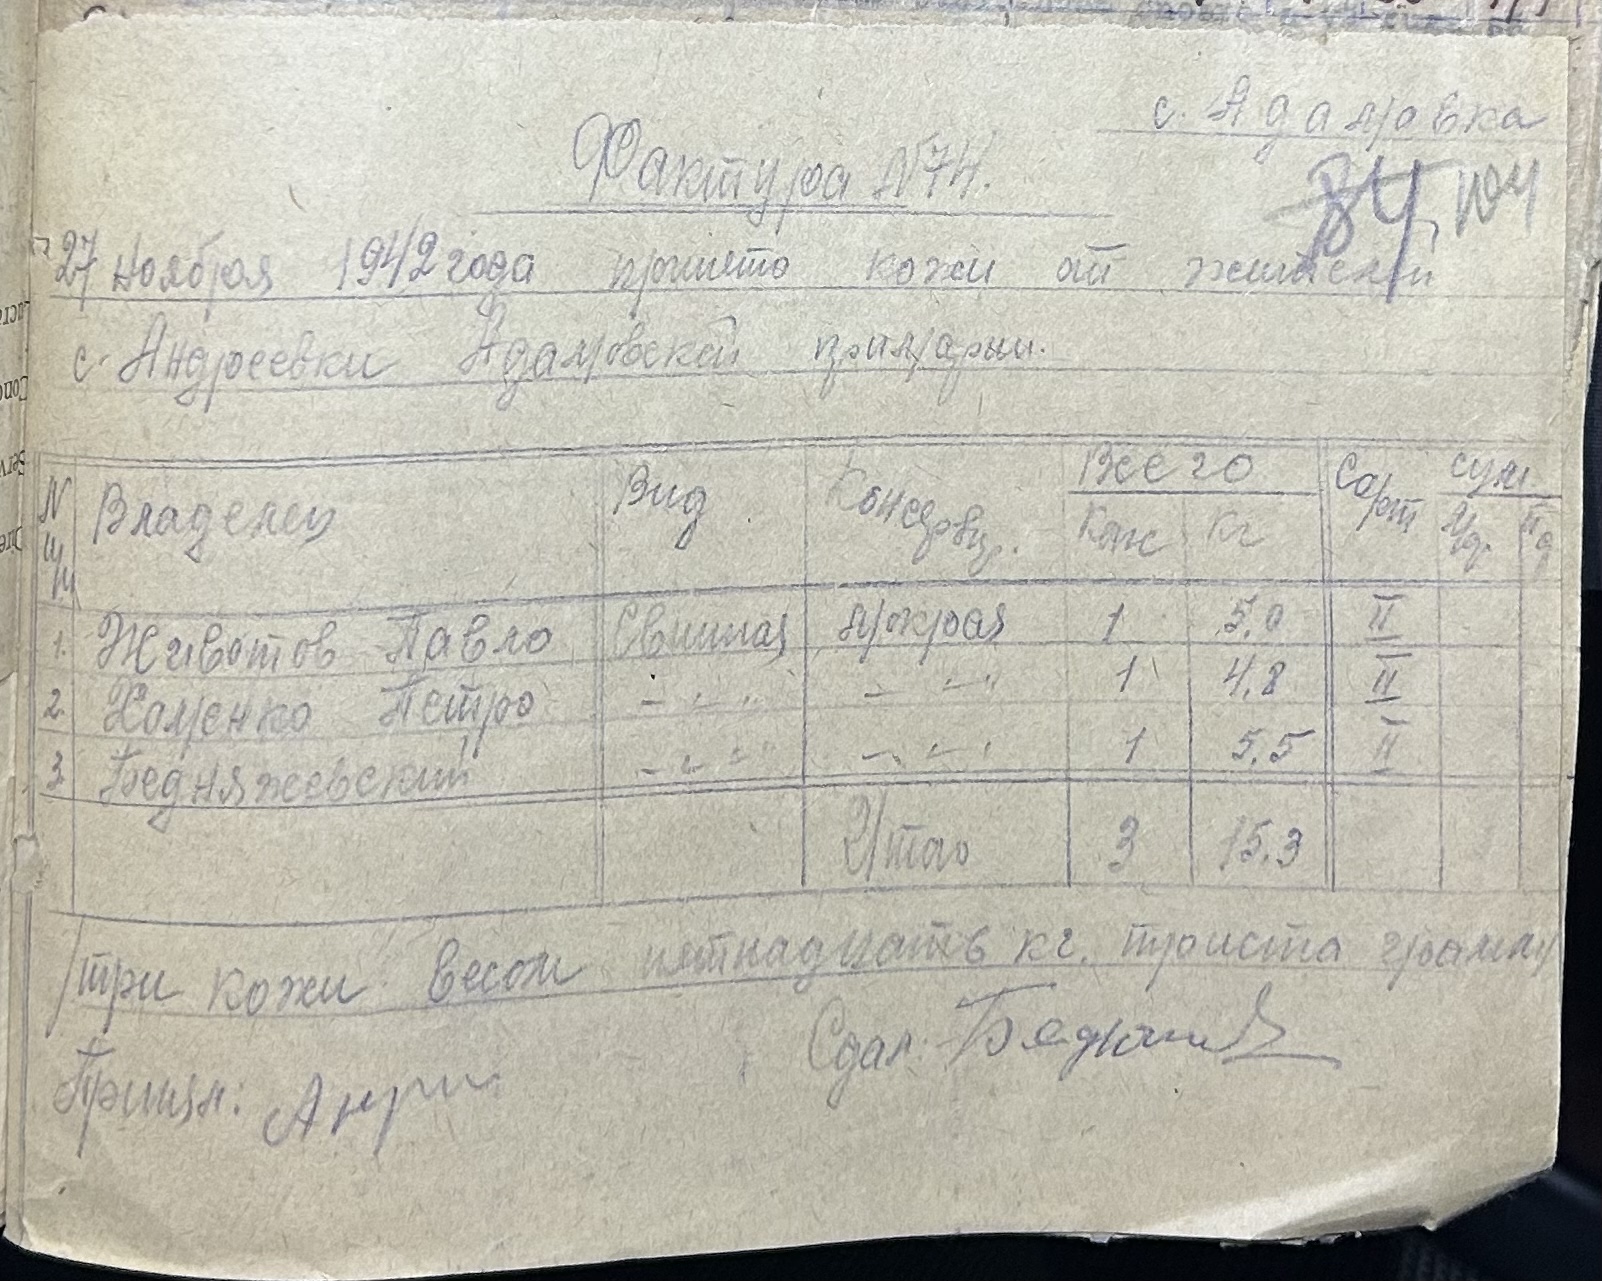 с. Адамовка
Фактура N74.
84, 104
27 ноября 1942 года принято кожи от жителей
с. Андреевки Адамовской примарыи.
N п/п Владелец Вид Консервир. Всего Сорт сум.
Кож Кг
1. Животов Павло Свиная мокрая 1 5,0 II
2. Хоменко Петро - " " - " " 1 4,8 II
3. Бедняжевский - " " - " " 1 5,5 II
Итого 3 15,3
/три кожи весом пятнадцать кг. триста грамм/
Сдал:
Принял: